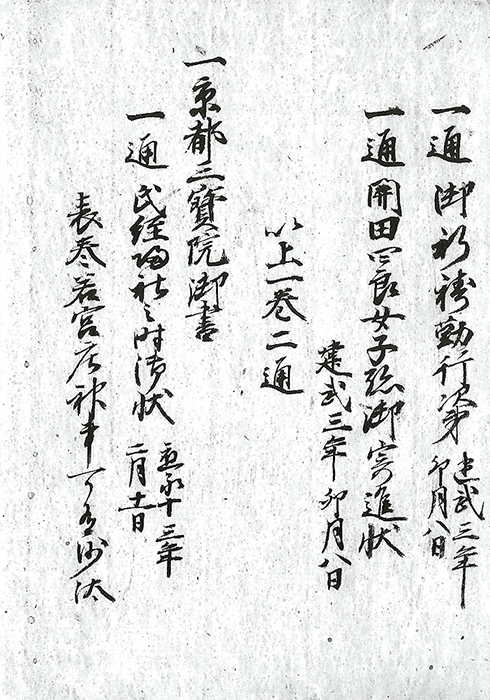 一通 御祈祷勤行次第 建武三年卯月八日
一通 開田四郎女子 御寄進状
建武三年卯月八日
以上一巻二通
一京都三寶院御書
一通 氏経 社之時御状 応永十三年二月十一日
表巻若宮 神 可 沙汰